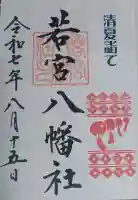 清夏詣で
若宮八幡社
令和七年八月十五日